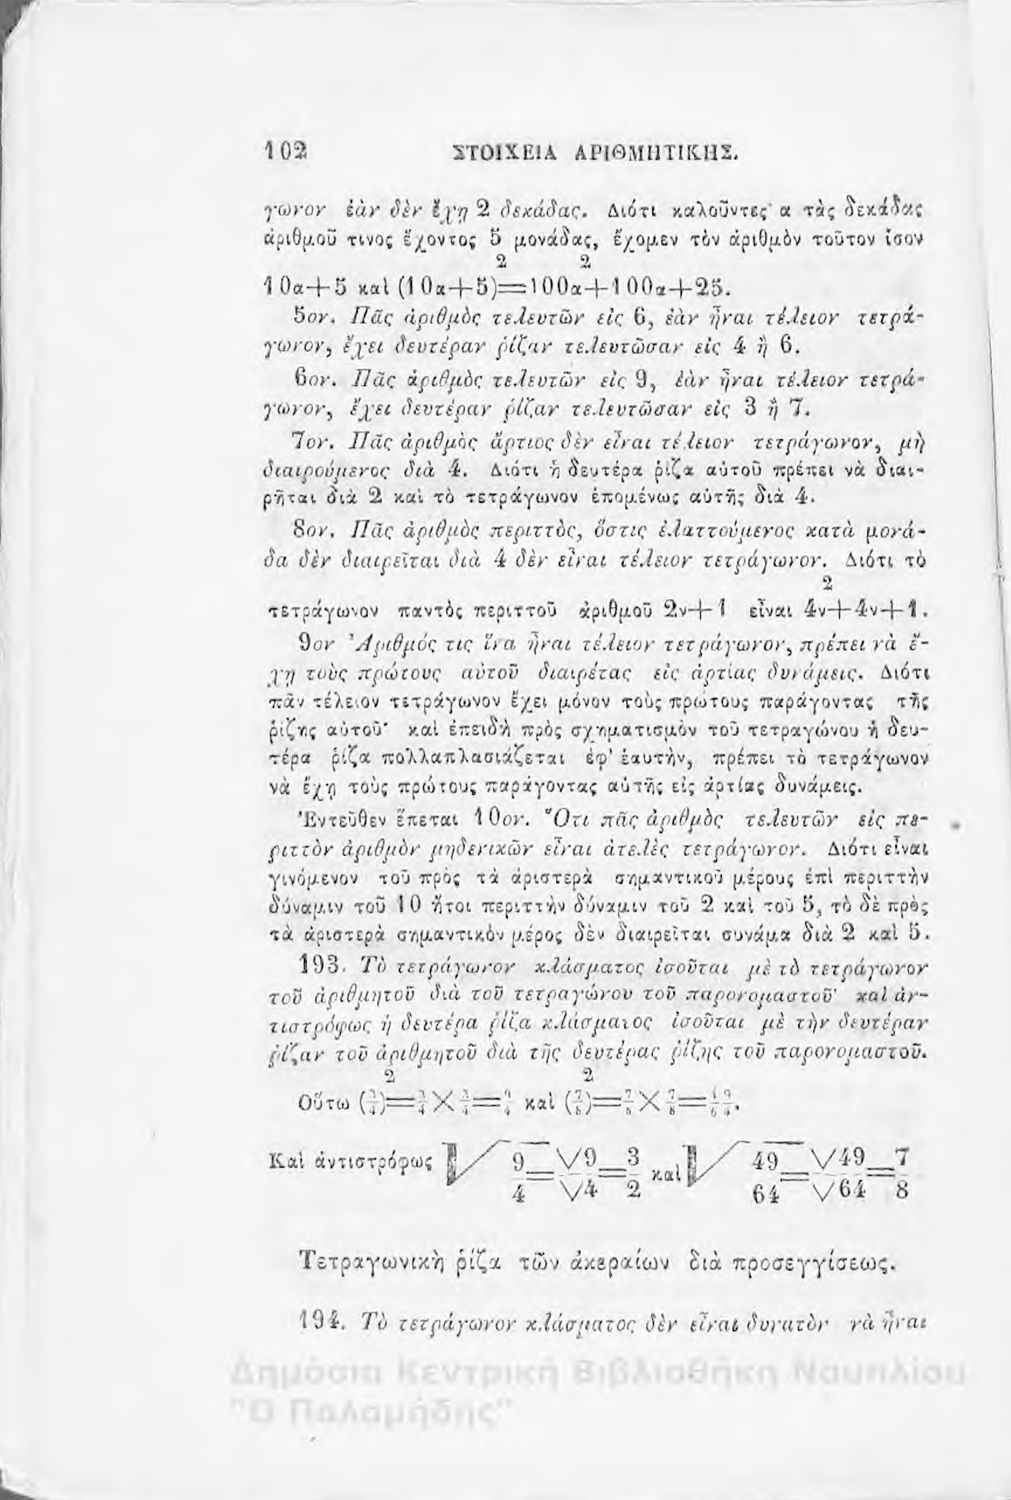 102 ΣΤΟΙΧΕΙΑ ΑΡΙΘΜΗΤΙΚΗΣ.
γωνον ἐὰν δὲν ἔχῃ 2 δεκάδας. Διότι καλοῦντες α τὰς δεκάδας
ἀριθμοῦ τινος ἔχοντος 5 μονάδας, ἔχομεν τὸν ἀριθμὸν τοῦτον ἴσον
2 2
10α+5 καὶ (10α+5)=100α+100α+25.
5ον. Πᾶς ἀριθμὸς τελευτῶν εἰς 6, ἐὰν ἦναι τέλειον τετρά-
γωνον, ἔχει δευτέραν ῥίζαν τελευτῶσαν εἰς 4 ἢ 6.
6ον. Πᾶς ἀριθμὸς τελευτῶν εἰς 9, ἐὰν ἦναι τέλειον τετρά-
γωνον, ἔχει δευτέραν ῥίζαν τελευτῶσαν εἰς 3 ἢ 7.
7ον. Πᾶς ἀριθμὸς ἄρτιος δὲν εἶναι τέλειον τετράγωνον, μὴ
διαιρούμενος διὰ 4. Διότι ἡ δευτέρα ῥίζα αὐτοῦ πρέπει νὰ διαι-
ρῆται διὰ 2 καὶ τὸ τετράγωνον ἑπομένως αὐτῆς διὰ 4.
8ον. Πᾶς ἀριθμὸς περιττὸς, ὅστις ἐλαττούμενος κατὰ μονά-
δα δὲν διαιρεῖται διὰ 4 δὲν εἶναι τέλειον τετράγωνον. Διότι τὸ
2
τετράγωνον παντὸς περιττοῦ ἀριθμοῦ 2ν+1 εἶναι 4ν+4ν+1.
9ον Ἀριθμός τις ἵνα ἦναι τέλειον τετράγωνον, πρέπει νὰ ἔ-
χῃ τοὺς πρώτους αὐτοῦ διαιρέτας εἰς ἀρτίας δυνάμεις. Διότι
πᾶν τέλειον τετράγωνον ἔχει μόνον τοὺς πρώτους παράγοντας τῆς
ῥίζης αὐτοῦ· καὶ ἐπειδὴ πρὸς σχηματισμὸν τοῦ τετραγώνου ἡ δευ-
τέρα ῥίζα πολλαπλασιάζεται ἐφ' ἑαυτὴν, πρέπει τὸ τετράγωνον
νὰ ἔχῃ τοὺς πρώτους παράγοντας αὐτῆς εἰς ἀρτίας δυνάμεις.
Ἐντεῦθεν ἕπεται 10ον. Ὅτι πᾶς ἀριθμὸς τελευτῶν εἰς πε-
ριττὸν ἀριθμὸν μηδενικῶν εἶναι ἀτελὲς τετράγωνον. Διότι εἶναι
γινόμενον τοῦ πρὸς τὰ ἀριστερὰ σημαντικοῦ μέρους ἐπὶ περιττὴν
δύναμιν τοῦ 10 ἤτοι περιττὴν δύναμιν τοῦ 2 καὶ τοῦ 5, τὸ δὲ πρὸς
τὰ ἀριστερὰ σημαντικὸν μέρος δὲν διαιρεῖται συνάμα διὰ 2 καὶ 5.
193. Τὸ τετράγωνον κλάσματος ἰσοῦται μὲ τὸ τετράγωνον
τοῦ ἀριθμητοῦ διὰ τοῦ τετραγώνου τοῦ παρονομαστοῦ· καὶ ἀν-
τιστρόφως ἡ δευτέρα ῥίζα κλάσματος ἰσοῦται μὲ τὴν δευτέραν
ῥίζαν τοῦ ἀριθμητοῦ διὰ τῆς δευτέρας ῥίζης τοῦ παρονομαστοῦ.
2 2
Οὕτω καὶ
Καὶ ἀντιστρόφως √ 9/4=√9/√4=3/2 καὶ √ 49/64=√49/√64=7/8
Τετραγωνικὴ ῥίζα τῶν ἀκεραίων διὰ προσεγγίσεως.
194. Τὸ τετράγωνον κλάσματος δὲν εἶναι δυνατὸν νὰ ἦναι
Δημόσια Κεντρική Βιβλιοθήκη Ναυπλίου
"Ο Παλαμήδης"